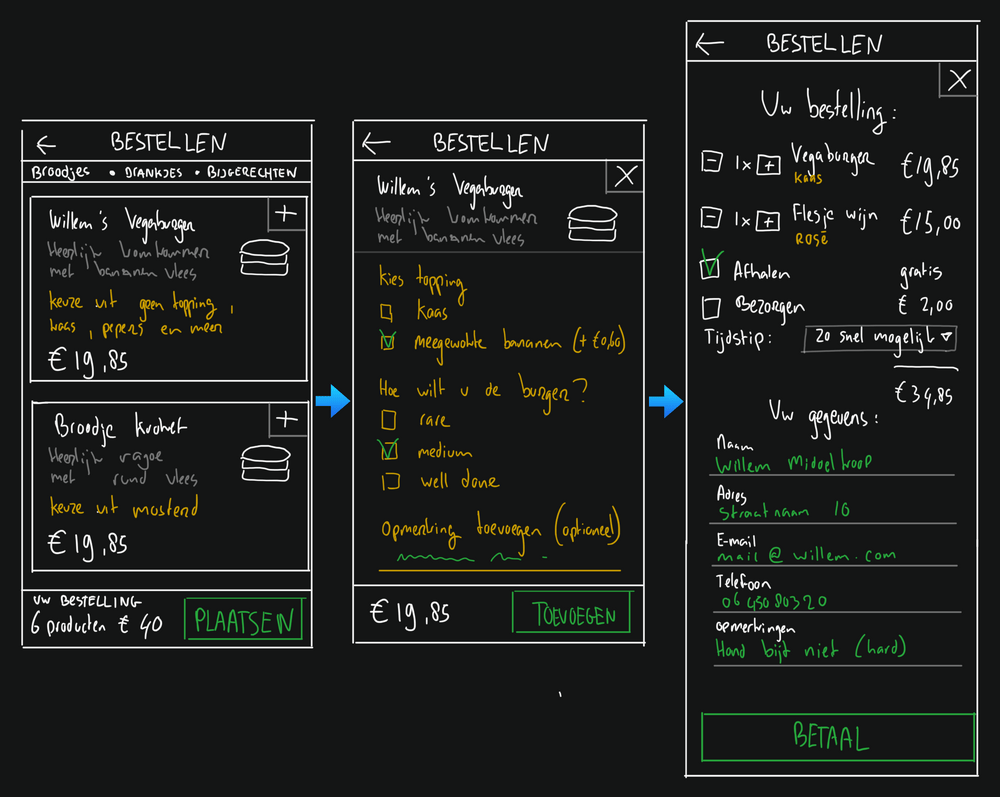 BESTELLEN
Broodjes • DRANKJES • BIJGERECHTEN
Willem's Vegaburger
Heerlijk komkommer
met bananen vlees
keuze uit geen topping,
kaas, pepers en meer
€ 19,85
Broodje kroket
Heerlijk ragoe
met rund vlees
keuze uit mosterd
€ 19,85
UW BESTELLING
6 producten € 40
PLAATSEN
BESTELLEN
Willem's Vegaburger
Heerlijk komkommer
met bananen vlees
kies topping
kaas
meegewokte bananen (+ €0,60)
Hoe wilt u de burger?
rare
medium
well done
Opmerking toevoegen (optioneel)
€ 19,85
TOEVOEGEN
BESTELLEN
Uw bestelling:
1x Vegaburger €19,85
kaas
1x Flesje wijn €15,00
ROSÉ
Afhalen gratis
Bezorgen € 2,00
Tijdstip: Zo snel mogelijk
€34,85
Uw gegevens:
Naam
Willem Middelkoop
Adres
Straatnaam 16
E-mail
mail@willem.com
Telefoon
06 45080320
opmerkingen
Hond bijt niet (hard)
BETAAL